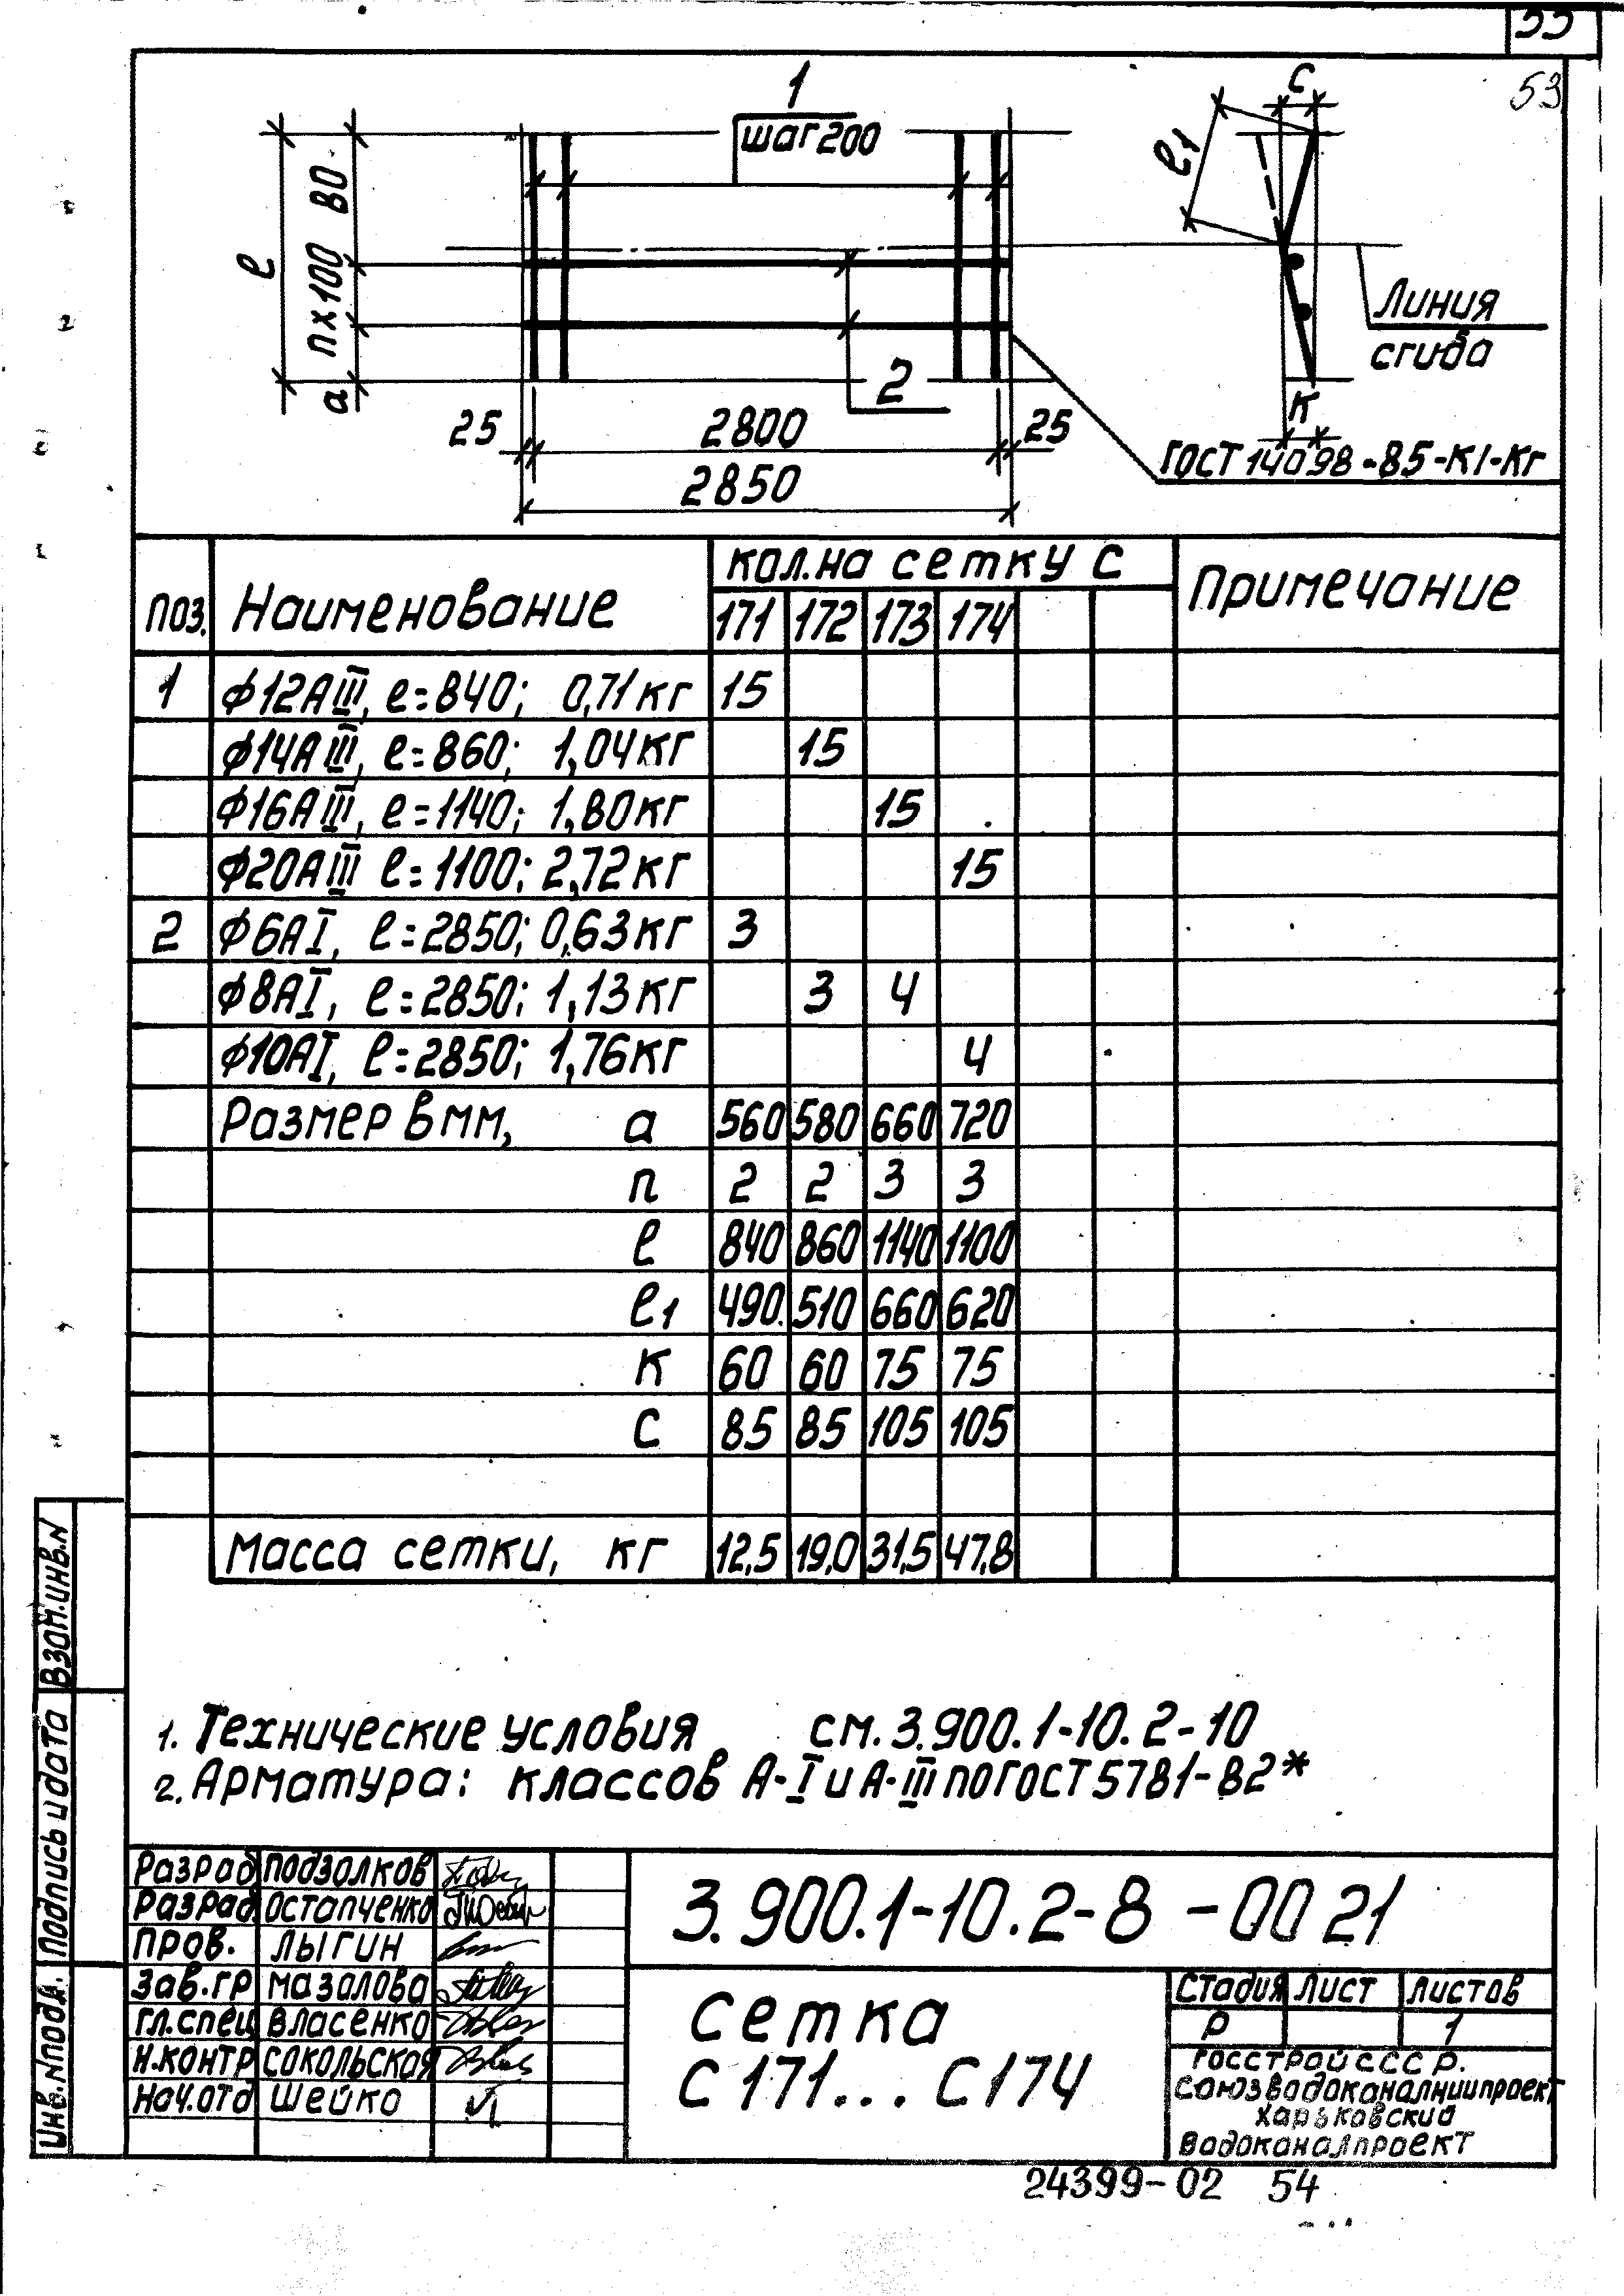 53
1
шаг 200
c
ℓ1
80
ℓ
п х 100
а
Линия
сгиба
2
к
25
2800
25
2850
ГОСТ 14098-85-К1-Кт
Поз. Наименование Кол. на сетку С Примечание
171 172 173 174
1 ф12АIII, ℓ=840; 0,71кг 15
ф14АIII, ℓ=860; 1,04кг 15
ф16АIII, ℓ=1140; 1,80кг 15
ф20АIII ℓ=1100; 2,72кг 15
2 ф6АI, ℓ=2850; 0,63кг 3
ф8АI, ℓ=2850; 1,13кг 3 4
ф10АI, ℓ=2850; 1,76кг 4
Размер в мм, а 560 580 660 720
п 2 2 3 3
ℓ 840 860 1140 1100
ℓ1 490 510 660 620
к 60 60 75 75
с 85 85 105 105
Масса сетки, кг 12,5 19,0 31,5 47,8
1. Технические условия см. 3.900.1-10.2-10
2. Арматура: классов А-I и А-III по ГОСТ 5781-82*
Взам.инв.N
Подпись и дата
Инв.N подл.
Разраб Подзолков
Разраб Остапченко
Пров. Лыгин
Зав.гр Мазалова
Гл.спец Власенко
Н.контр Сокольская
Нач.отд Шейко
3.900.1-10.2-8-0021
Сетка
С171...С174
Стадия Лист Листов
Р 1
Госстрой СССР.
Союзводоканалниипроект
Харьковский
Водоканалпроект
24399-02 54